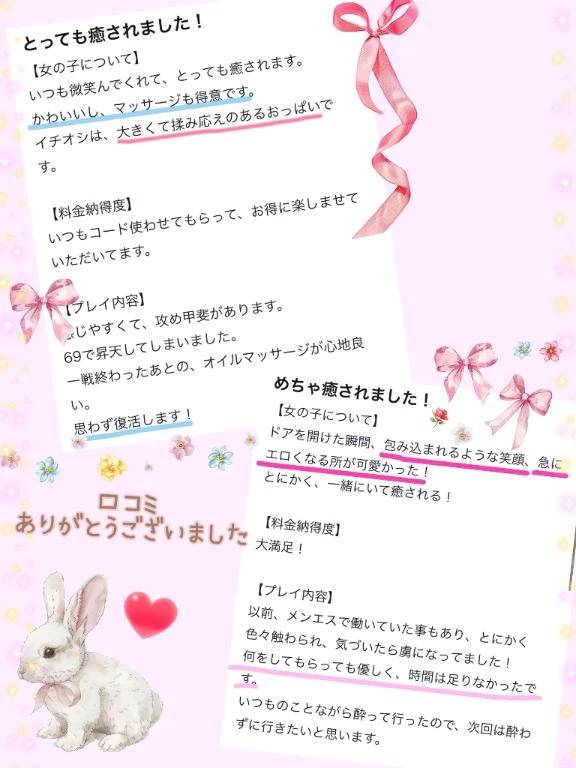 とっても癒されました！
【女の子について】
いつも微笑んでくれて、とっても癒されます。
かわいいし、マッサージも得意です。
イチオシは、大きくて揉み応えのあるおっぱいで
す。
【料金納得度】
いつもコード使わせてもらって、お得に楽しませて
いただいてます。
【プレイ内容】
じやすくて、攻め甲斐があります。
69で昇天してしまいました。
一戦終わったあとの、オイルマッサージが心地良
い。
思わず復活します！
めちゃ癒されました！
【女の子について】
ドアを開けた瞬間、包み込まれるような笑顔、急に
エロくなる所が可愛かった！
とにかく、一緒にいて癒される！
【料金納得度】
大満足！
【プレイ内容】
以前、メンエスで働いていた事もあり、とにかく
色々触わられ、気づいたら虜になってました！
何をしてもらっても優しく、時間は足りなかったで
す。
いつものことながら酔って行ったので、次回は酔わ
ずに行きたいと思います。
口コミ
ありがとうございました